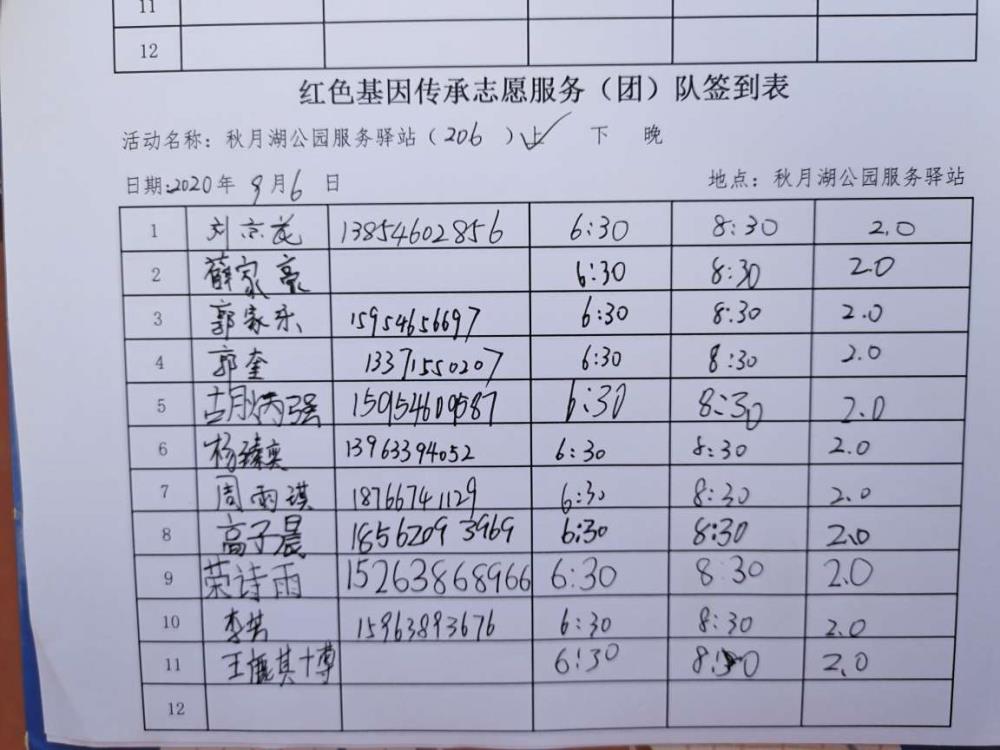 11
12
红色基因传承志愿服务（团）队签到表
活动名称：秋月湖公园服务驿站（206 ）上✓ 下 晚
日期:2020年 9月6 日 地点：秋月湖公园服务驿站
1 刘京花 13854602856 6:30 8:30 2.0
2 薛家豪 6:30 8:30 2.0
3 郭家乐 15954656697 6:30 8:30 2.0
4 郭奎 13371550207 6:30 8:30 2.0
5 胡炳强 15095460587 6:30 8:30 2.0
6 杨臻奥 13963394052 6:30 8:30 2.0
7 周雨琪 18766741129 6:30 8:30 2.0
8 高子晨 18562093969 6:30 8:30 2.0
9 荣诗雨 15263868966 6:30 8:30 2.0
10 李芸 15963893676 6:30 8:30 2.0
11 王 其十博 6:30 8:30 2.0
12